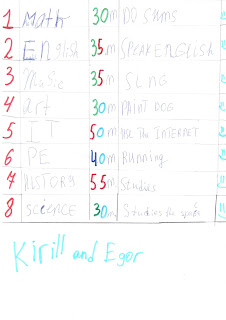 1 Math 30m DO SUMS
2 English 35m SPEAK ENGLISH
3 MuSic 35m SING
4 art 30m PAINT DOG
5 IT 50m USE The INTERNET
6 PE 40m Running
7 HISTORY 55m Studies
8 science 30m Studies the
Kirill and Egor